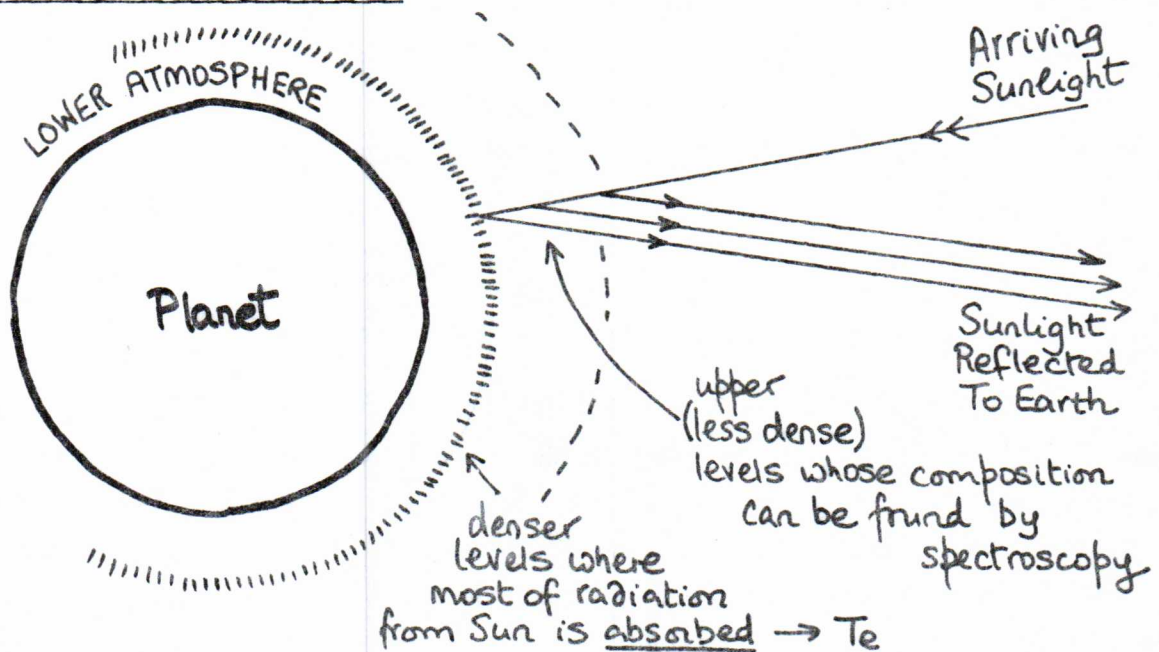 LOWER ATMOSPHERE
Planet
Arriving
Sunlight
Sunlight
Reflected
To Earth
upper
(less dense)
levels whose composition
can be found by
spectroscopy
denser
levels where
most of radiation
from Sun is absorbed → Te